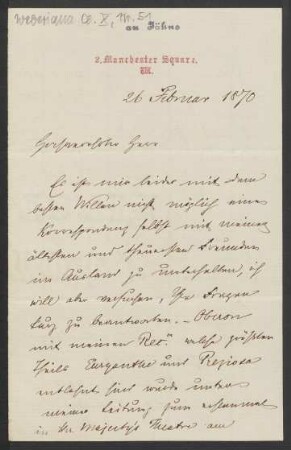 Weberiana Cl. X, Nr. 51
an Jähns
2, Manchester Square.
W.
26 Februar 1870
Hochverehrter Herr
Es ist mir leider mit dem
besten Willen nicht möglich eine
Korrespondenz selbst mit meinen
ältesten und theuersten Freunden
im Ausland zu unterhalten, ich
will aber versuchen, Ihre Fragen
kurz zu beantworten. – Oberon
mit meinen Rec. welche größten
theils Euryanthe und Preziosa
entlehnt sind wurde unter
meiner Leitung zum erstenmal
in Her Majestys Theatre am